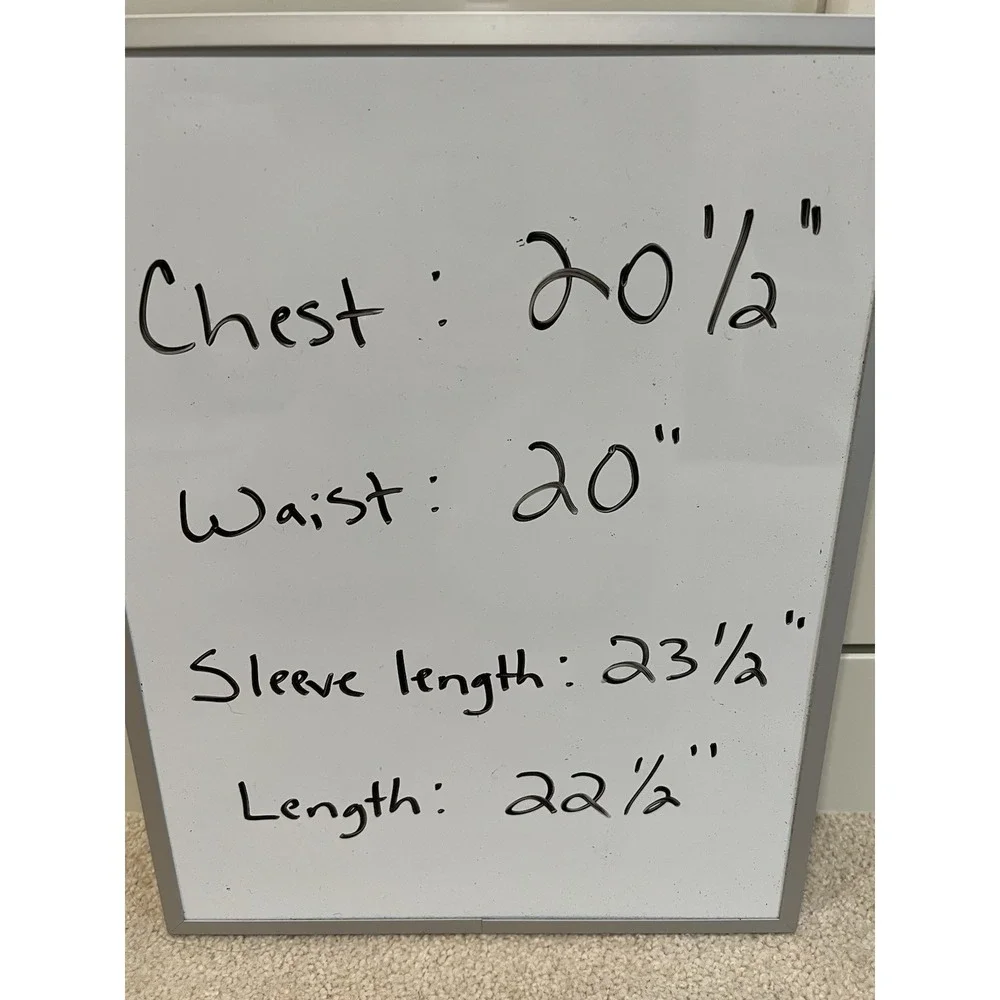 Chest: 20 1/2"
Waist: 20"
Sleeve length: 23 1/2"
Length: 22 1/2"